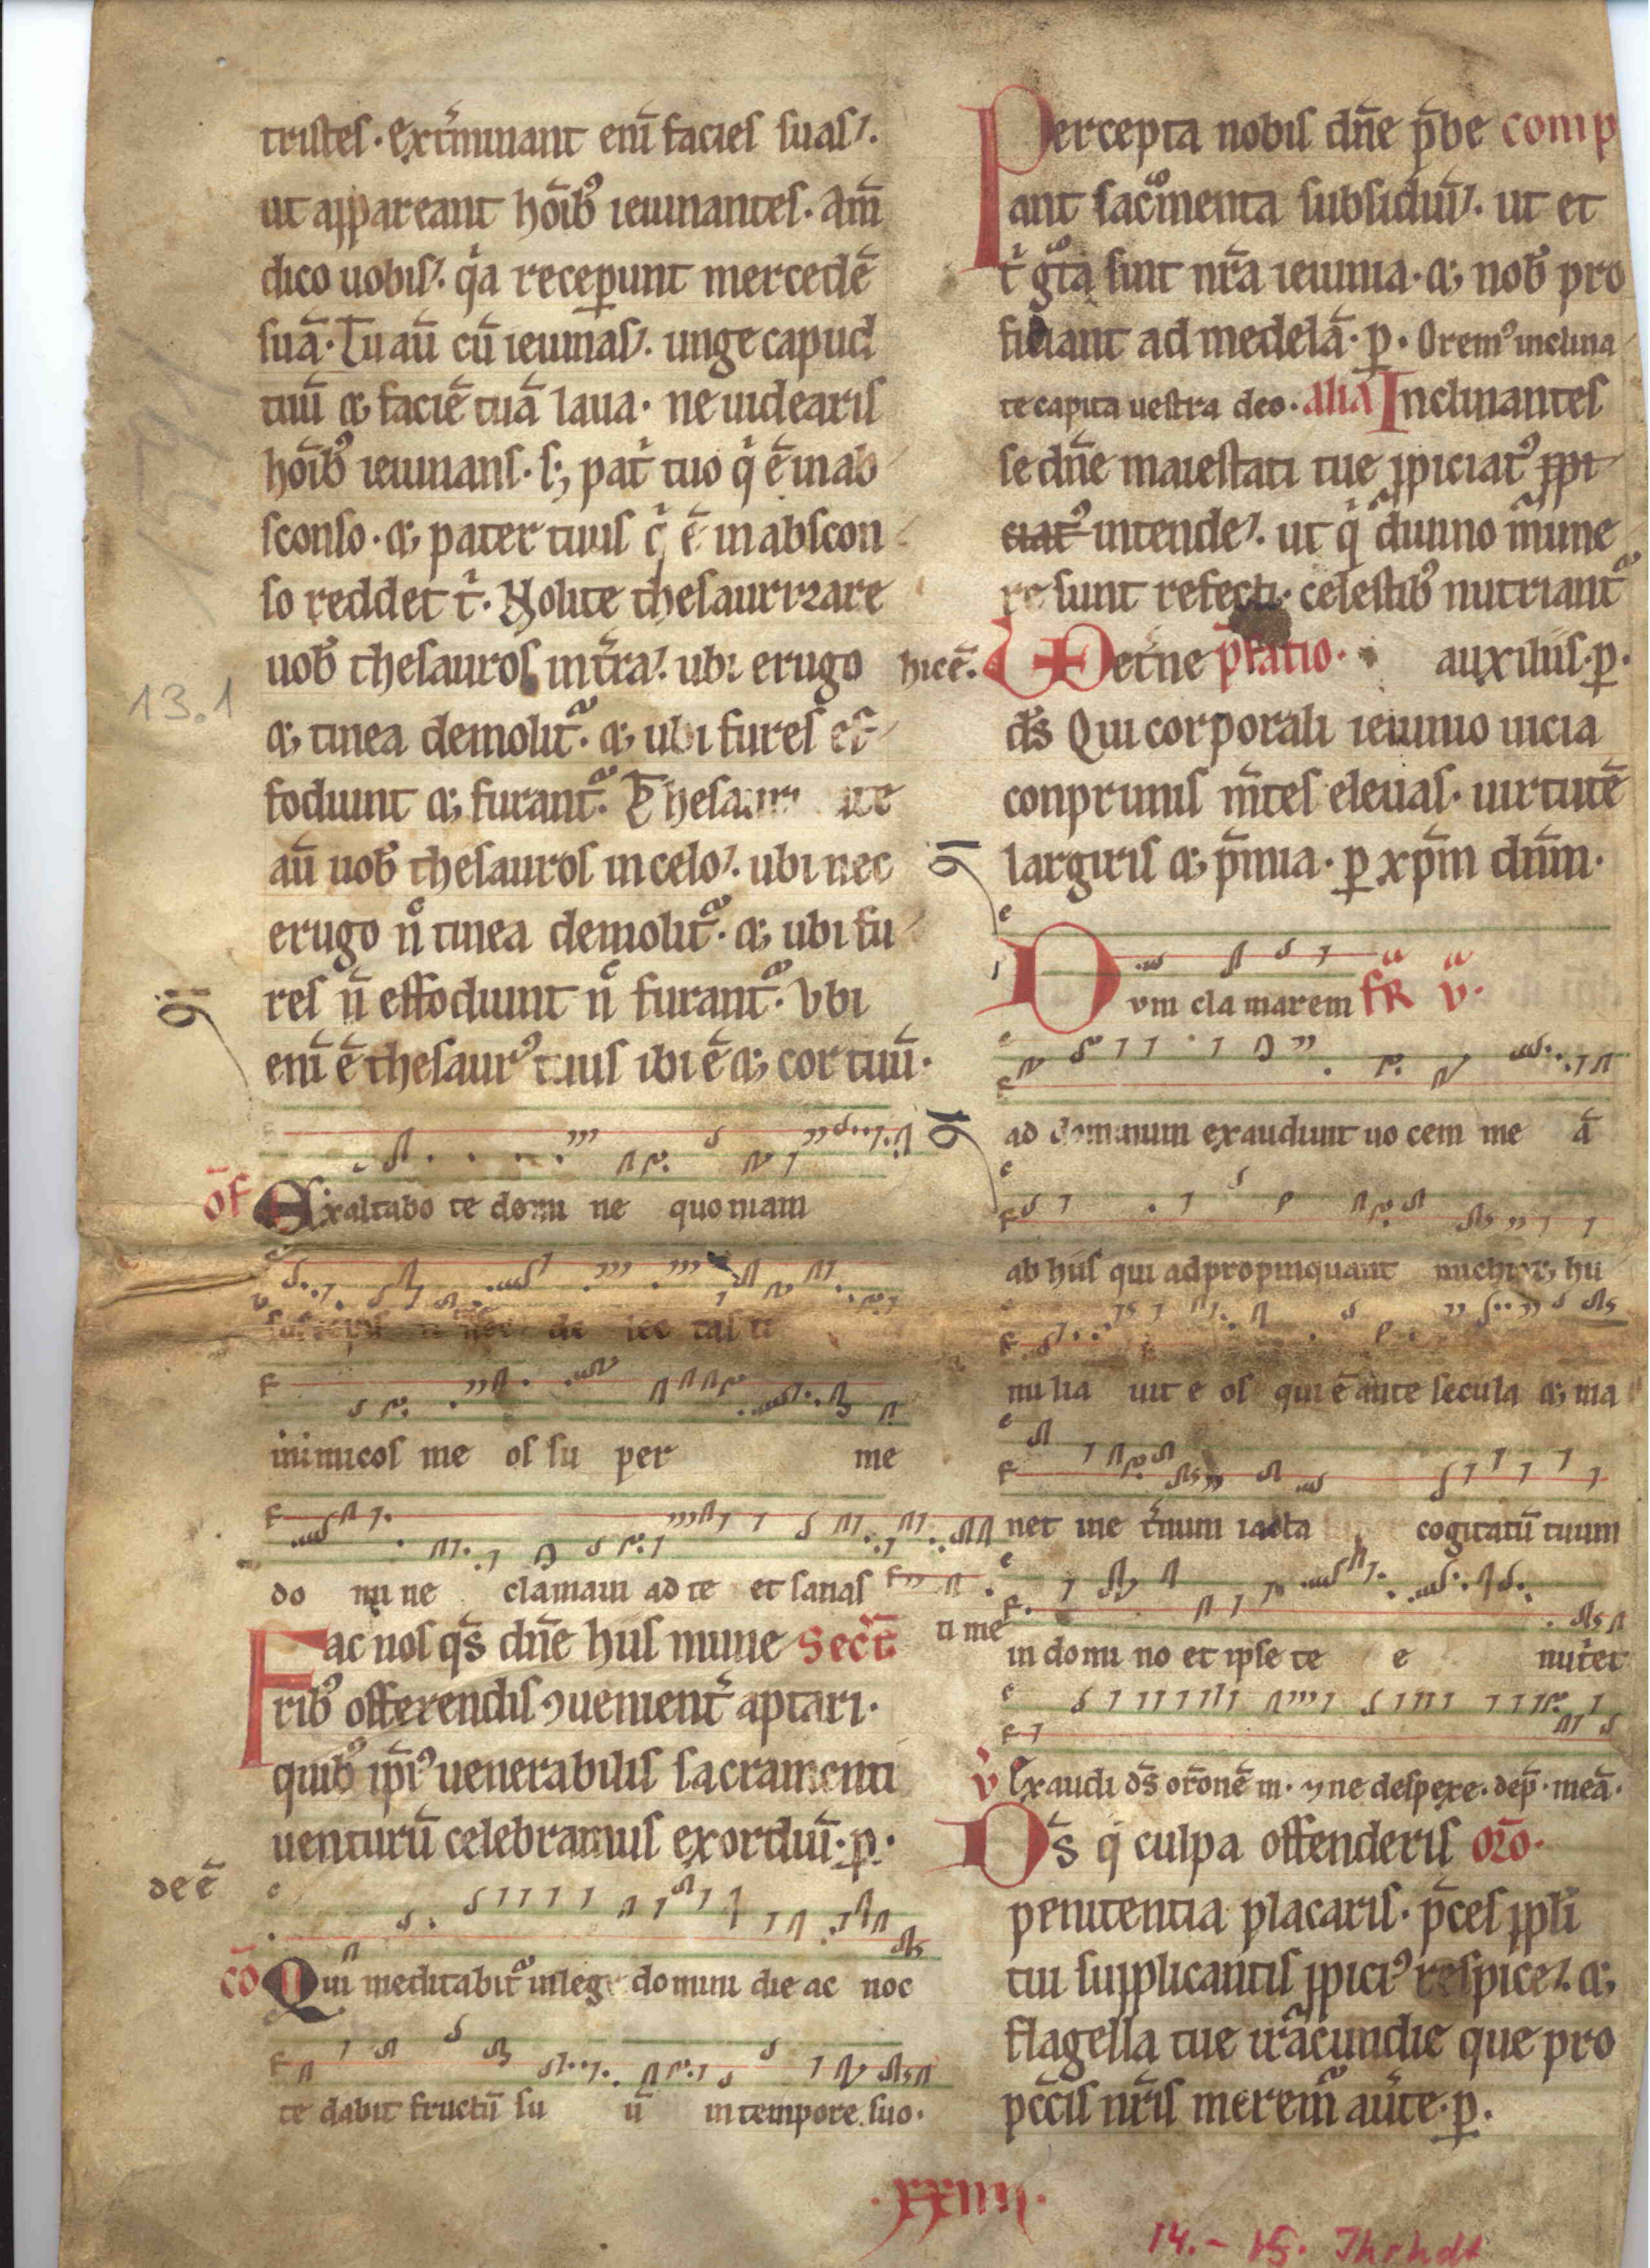 tristes. Ext̃minant eni̅ facies suas.
ut appareant ho̅ibꝫ ieiunantes. Am̅
dico uobis. qͥa receperunt mercede̅
sua̅. Tu au̅ cu̅ ieiunas. unge capud
tuu̅ & facie̅ tua̅ laua. ne uidearis
ho̅ibꝫ ieiunans. sꝫ pat̃ tuo qͥ e̅ in ab
sconso. & pater tuus qͥ e̅ in abscon
so reddet tͥ. Nolite thesaurizare
uob̅ thesauros in t̃ra. ubi erugo
& tinea demolit̃. & ubi fures ef
fodiunt & furant̃. Thesauri ate
au̅ uob̅ thesauros in celo. ubi nec
erugo n̅ tinea demolit̃. & ubi fu
res n̅ effodiunt n̅ furant̃. Vbi
eni̅ e̅ thesaurꝰ tuus ibi e̅ & cor tuu̅.
of̅ Exaltabo te domi ne quoniam
inimicos me os su per me
do mi ne clamaui ad te et sanas
ti me
Fac nos qs̅ dn̅e hiis mune Secr̅
ribꝫ offerendis ꝯuenient̃ aptari.
quibꝫ ip̅iꝰ uenerabilis sacramenti
uenturu̅ celebramus exordiu̅. p.
de e̅
co̅ Qui meditabit̃ in lege domini die ac noc
te dabit fructu̅ su u̅ in tempore suo.
Percepta nobis dn̅e p̅be comp
ant sac̃menta subsidiu̅. ut et
tͥ g̃ta sint nr̅a ieiunia. & nob̅ pro
ficiant ad medela̅. p. Oremꝰ inclina
te capita uestra deo. alia Inclinantes
se dn̅e maiestati tue ꝓpiciatꝰ ꝓpi
ciatꝰ intende. ut qͥ diuino mune
re sunt refecti. celestibꝫ nutriant̃
hic e̅. VD et̃ne p̅fatio. auxiliis. p.
ds̅ Qui corporali ieiunio uicia
conprimis m̅tes eleuas. uirtute̅
largiris & p̅mia. p xp̅m dn̅m.
Dvm cla marem fr̃ v̅.
ad dominum exaudiuit uo cem me a̅
ab hiis qui adpropinquant michi & hu
mi lia uit e os qui e̅ ante secula & ma
net ine t̃num iacta cogitatu̅ tuum
in domi no et ipse te e nut̃et
v̅ Exaudi ds̅ or̅one̅ m. & ne despexe. dep̅. mea̅.
Ds̅ qͥ culpa offenderis or̅o.
penitentia placaris. p̅ces ppl̅i
tui supplicantis ꝓpiciꝰ respice. &
flagella tue iracundie que pro
pcc̅is nr̅is meremͬ au̅te. p.
.xxiiii.
13.1
14.- 15. Jhrhdt